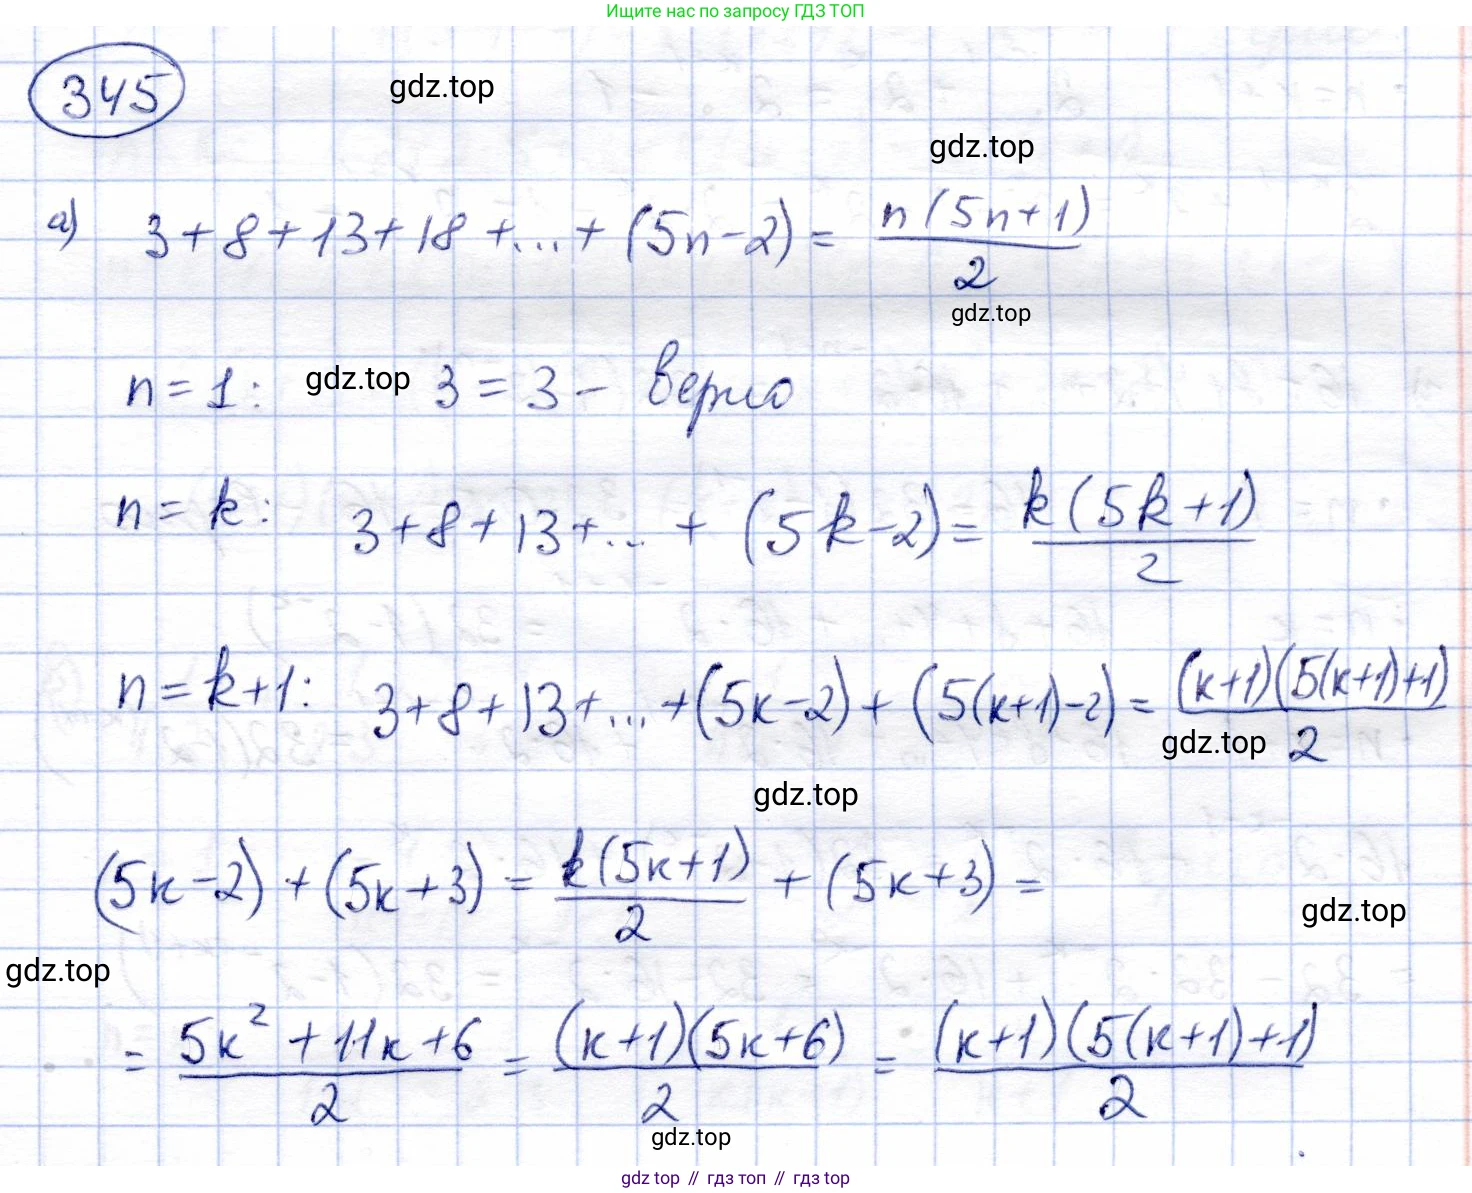 Ищите нас по запросу ГДЗ ТОП
345
gdz.top
gdz.top
а) 3+8+13+18+...+(5n-2)= n(5n+1)/2
gdz.top
n=1: gdz.top 3=3- верно
n=k: 3+8+13+...+(5k-2)= k(5k+1)/2
n=k+1: 3+8+13+...+(5к-2)+(5(к+1)-2)= (к+1)(5(к+1)+1)/2
gdz.top
gdz.top
(5к-2)+(5к+3)= k(5к+1)/2 +(5к+3)=
gdz.top
gdz.top
= 5к²+11к+6/2 = (к+1)(5к+6)/2 = (к+1)(5(к+1)+1)/2
gdz.top
gdz top // гдз топ // гдз top